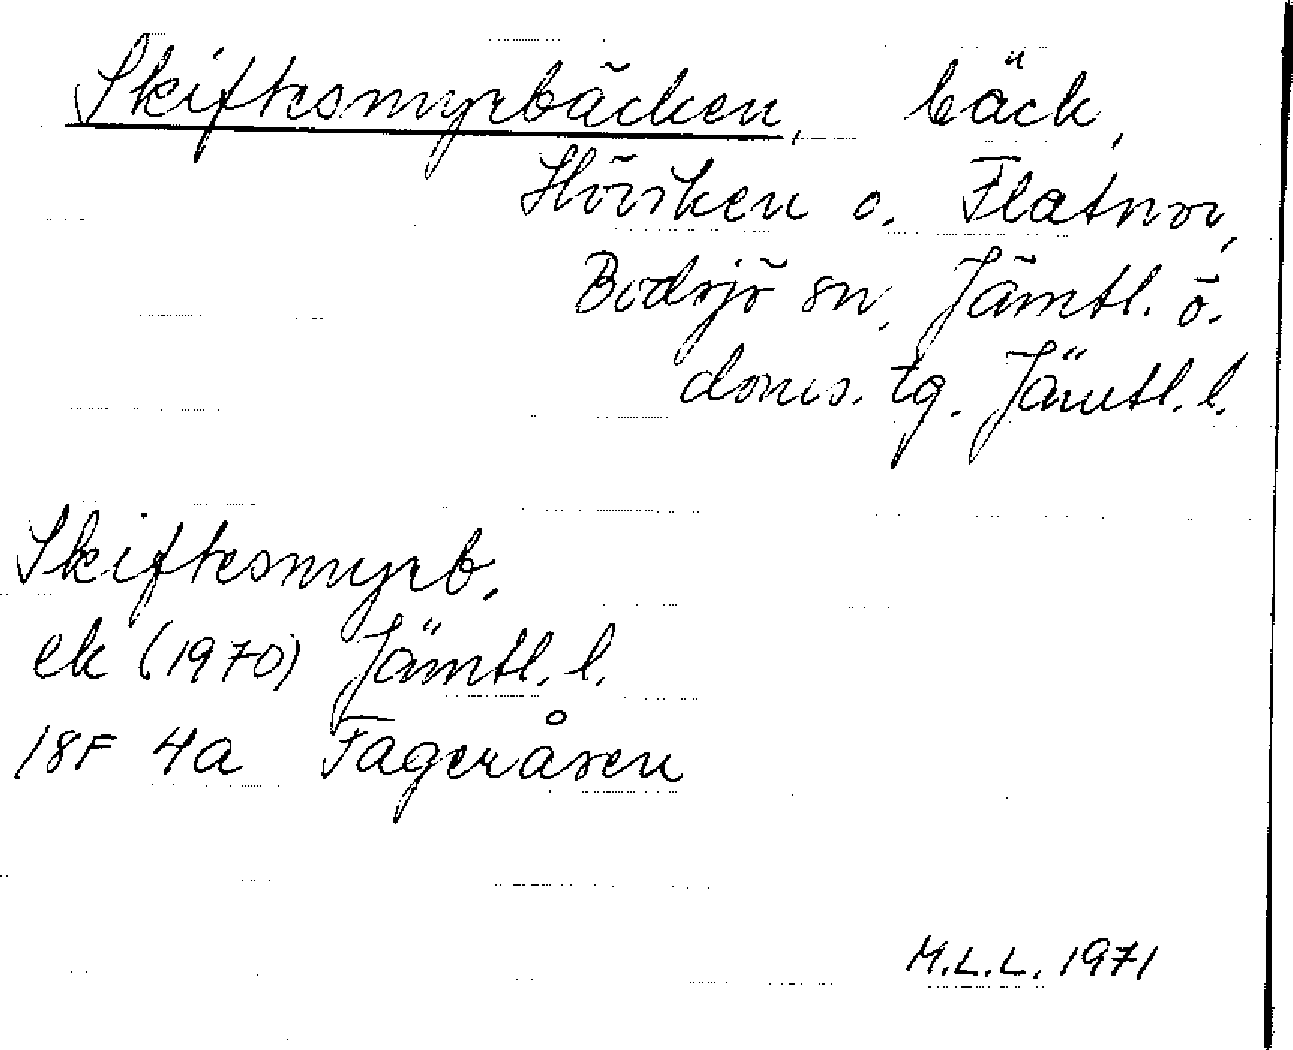 Skiftesmyrbäcken, bäck,
Hösken o. Flatnor,
Bodsjö sn, Jämtl. ö.
doms. tg. Jämtl. l.
Skiftesmyrb.
ek (1970) Jämtl. l.
18F 4a Fageråsen
M.L.L. 1971